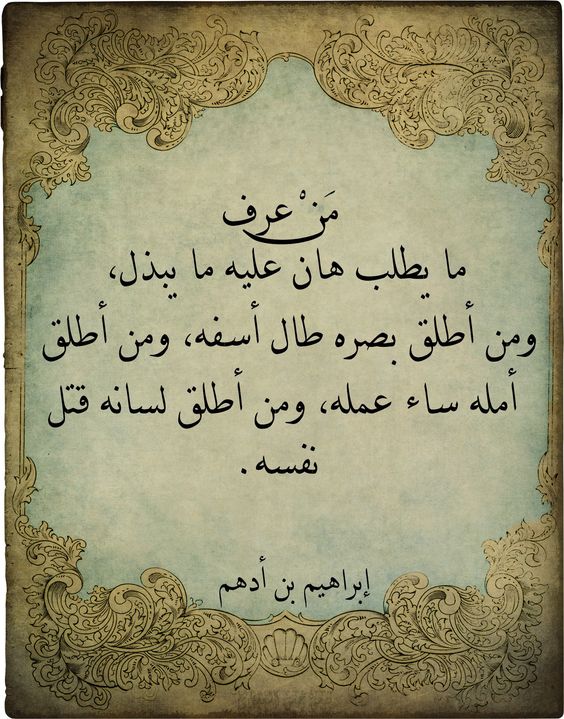 مَنْ عرف
ما يطلب هان عليه ما يبذل،
ومن أطلق بصره طال أسفه، ومن أطلق
أمله ساء عمله، ومن أطلق لسانه قتل
نفسه.
إبراهيم بن أدهم